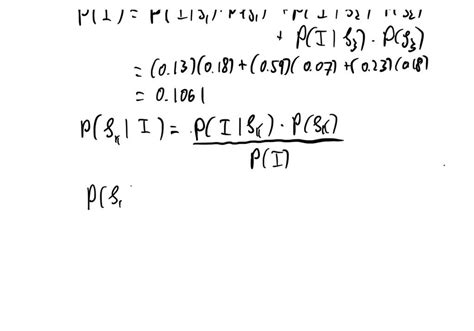 P(I) = P(I|S₁).P(S₁) + P(I|S₂).P(S₂)
+ P(I|S₃).P(S₃)
= (0.13)(0.18) + (0.59)(0.07) + (0.23)(0.18)
= 0.1061
P(Sₖ|I) = P(I|Sₖ).P(Sₖ)
P(I)
P(S₁